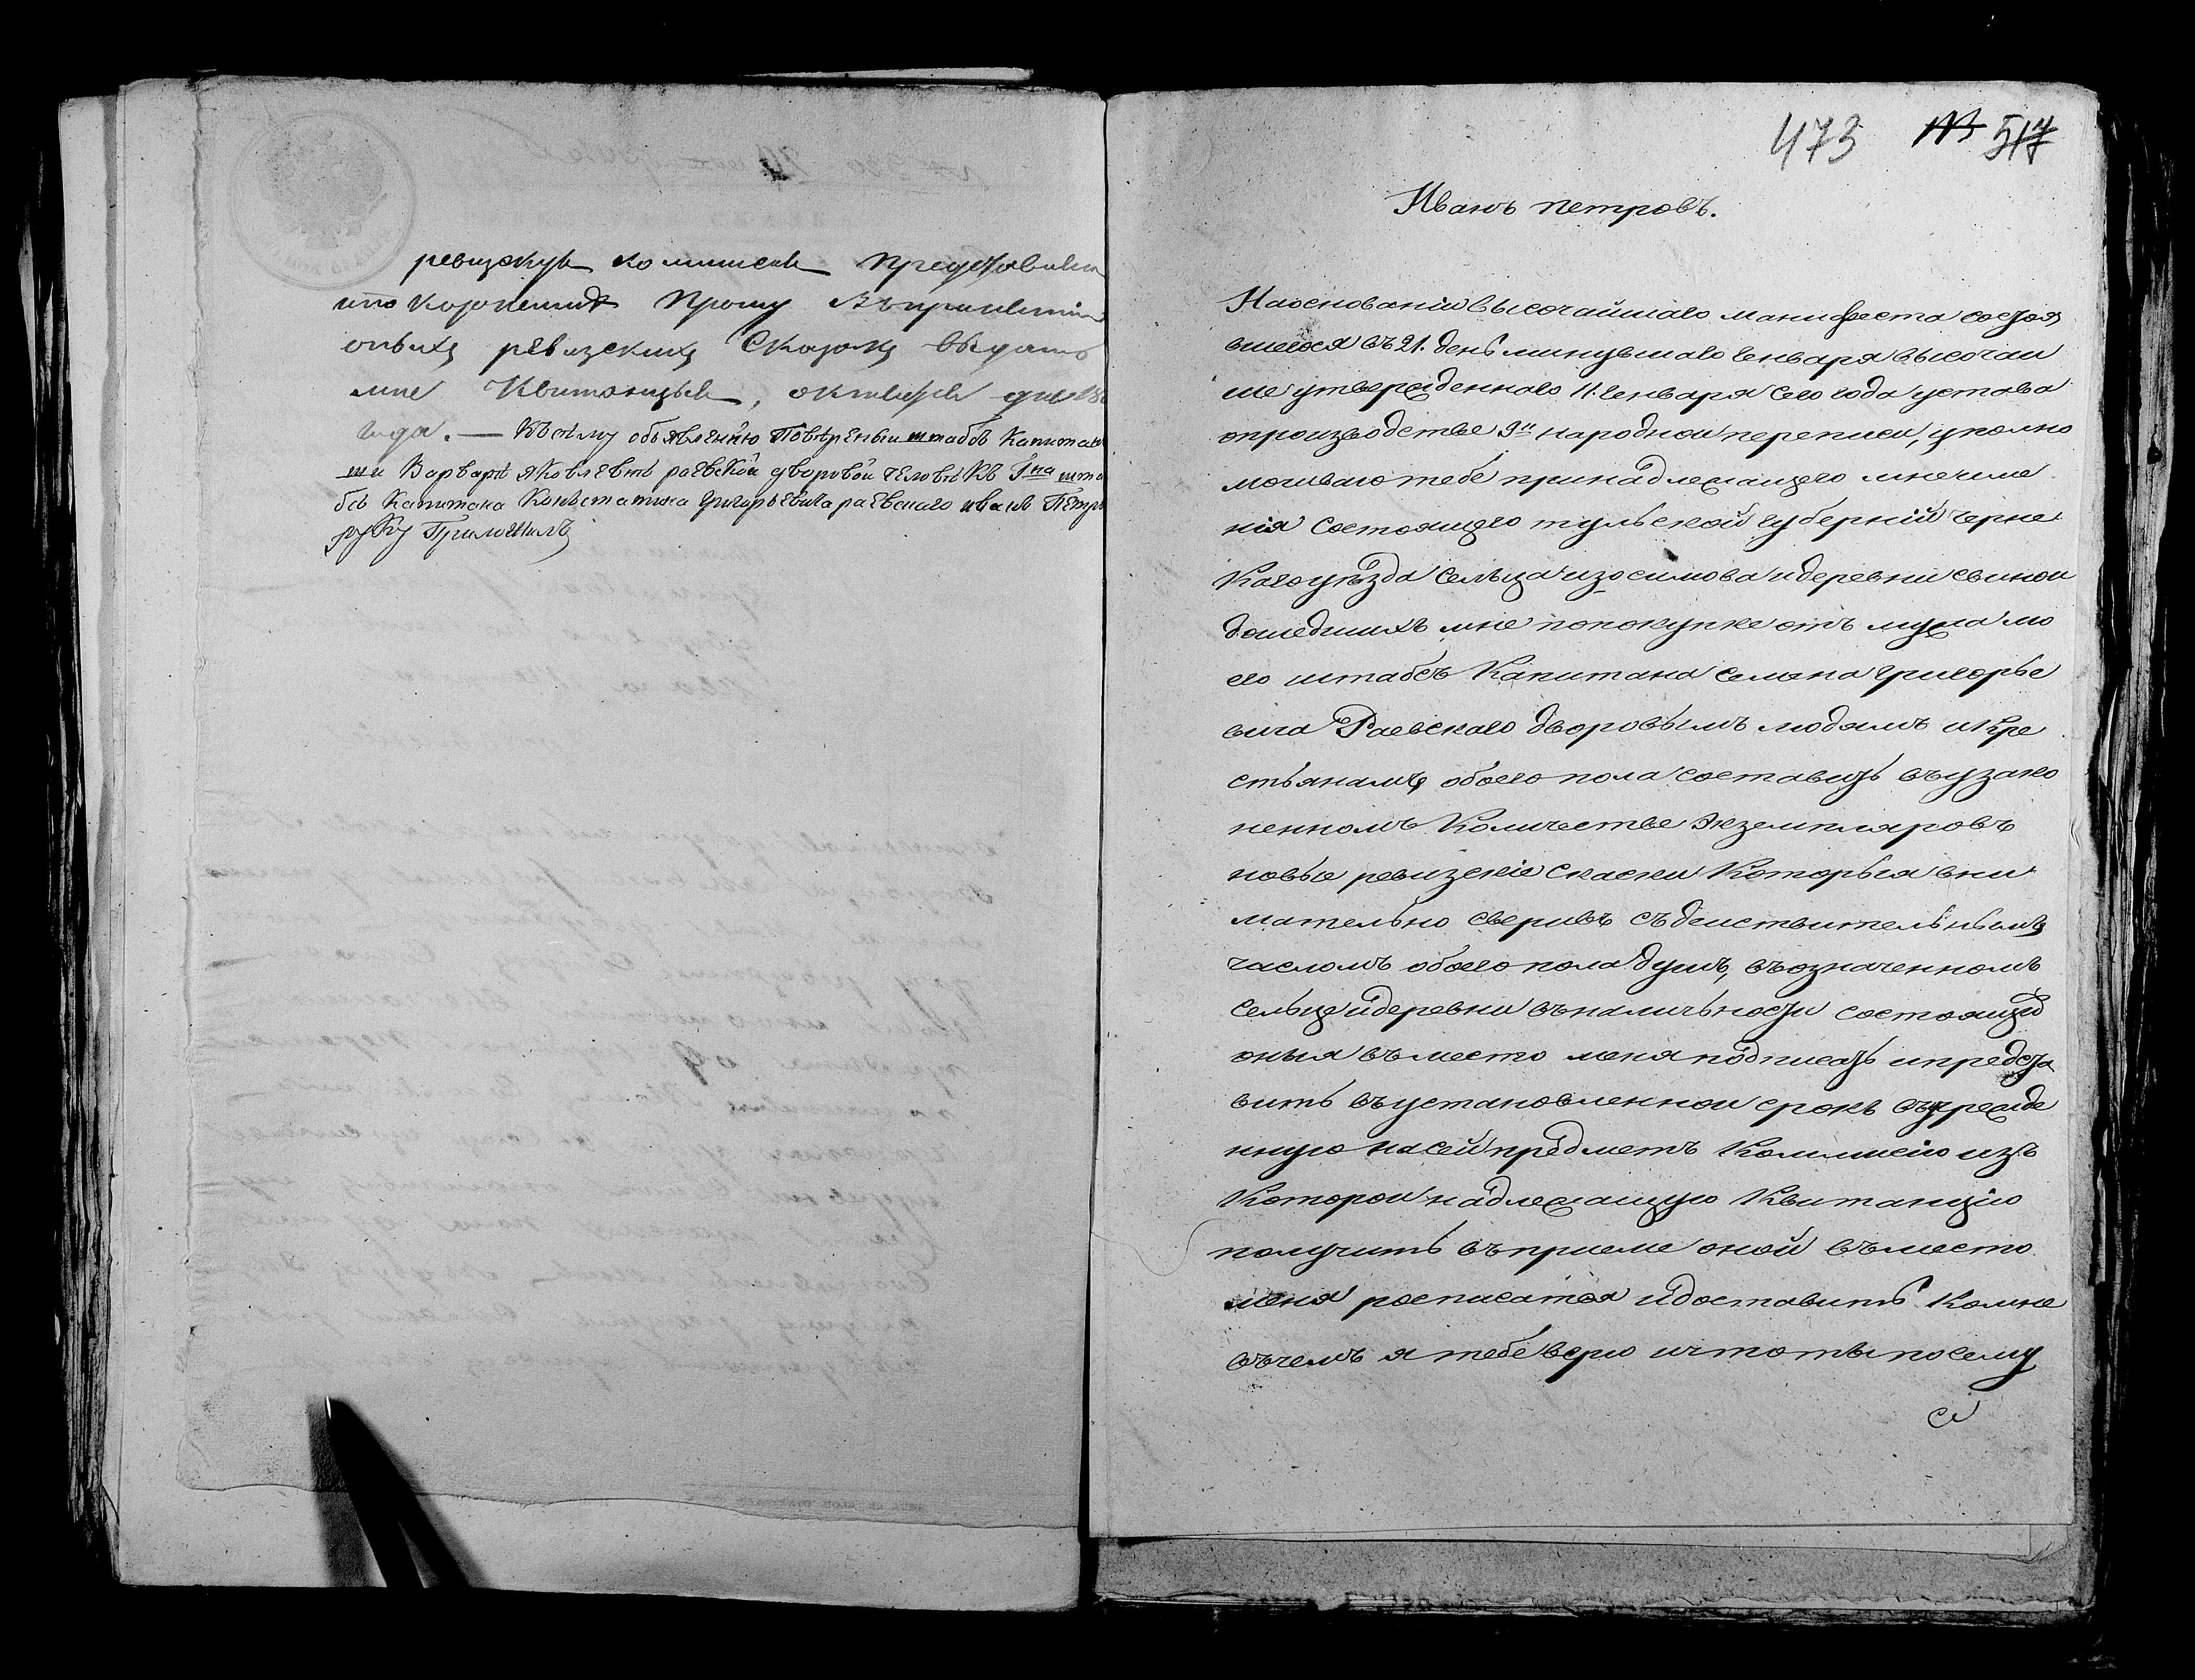 ревизскую комисею Представить
что коронился Прошу въ принятии
оныхъ ревизскихъ Сказокъ выдать
мне Квитанцыю, октября дня 185
года. — Къ сему объявленйю Повѣреныи штабсъ Капитан
ши Варварѣ яковлевнѣ раевской дворовои человѣкъ Г на шта
бсъ Капитана Коньстатина григорьевича раевского иванъ Петро
руку Приложилъ
473 517
Иванъ петровъ.
На основаніи высочайшаго манифеста состоя
вшегося въ 21. день минувшаго генваря высочаи
ше утвержденнаго 11. генваря сего года устава
о производстве 9й народнои переписи, уполно
мочиваю тебе принадлежащего мне име
нія состоящего тульской губерній черне
каго уѣзда сельца изосимова и деревни свинои
дошедшихъ мне по покупке отъ мужа мо
его штабсъ Капитана семена григорье
вича Раевскаго дворовымъ людямъ и Кре
стьянамъ обоего пола составить въ узако
ненномъ Количестве экземпляровъ
новые ревизскіе скаски Которыя вни
мательно сверивъ съ деиствительнымъ
числомъ обоего пола душъ, въ означенномъ
сельце и деревни въ наличьности состоящей
оныя въместо меня подписать и предста
вить въ установленнои срокъ въ учрежде
нную на сей предметъ Коммисию изъ
Которои надлежащую Квитанцію
получить въ приеме оной въместо
меня росписатся и доставить Комне
въчемъ я тебе верю и что ты по сему
се